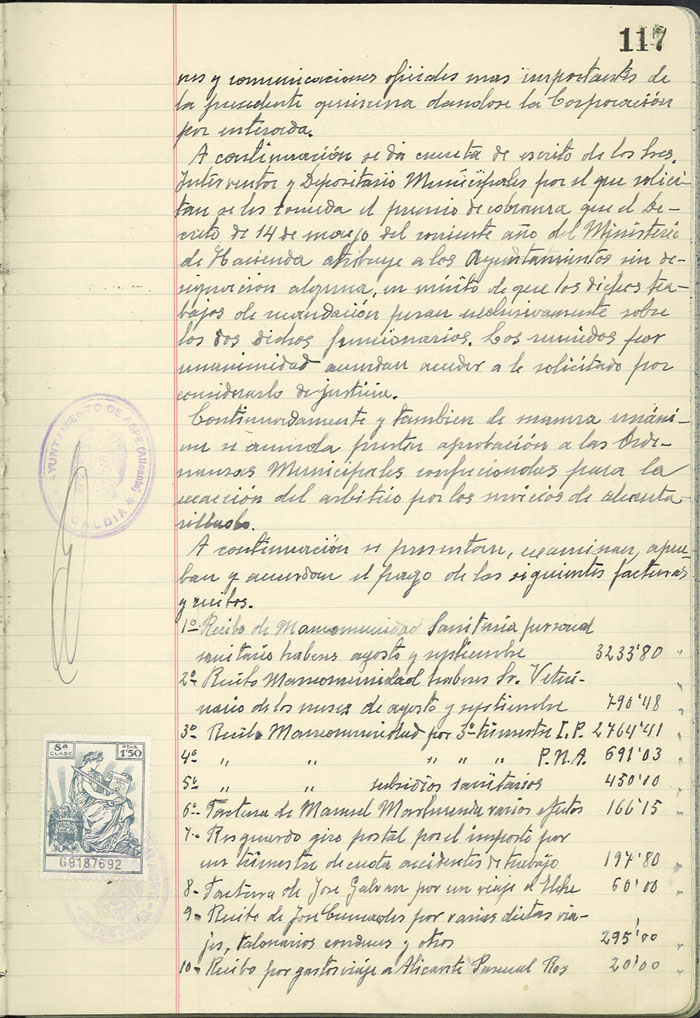 117
nes y comunicaciones oficiales mas importantes de
la precedente quincena dandose la Corporación
por enterada.
A continuación se da cuenta de escrito de los Sres.
Interventor y Depositario Municipales por el que solici-
tan se les conceda el premio de cobranza que el De-
creto de 14 de marzo del corriente año del Ministerio
de Hacienda atribuye a los Ayuntamientos sin de-
signacion alguna, en mérito de que los dichos tra-
bajos de recaudación pesan exclusivamente sobre
los dos dichos funcionarios. Los reunidos por
unanimidad acuerdan acceder a lo solicitado por
considerarlo de justicia.
Continuadamente y tambien de manera unáni-
me se acuerda prestar aprobación a las Orde-
nanzas Municipales confeccionadas para la
exacción del arbitrio por los servicios de alcanta-
rillado.
A continuación se presentan, examinan, aprue-
ban y acuerdan el pago de las siguientes facturas
y recibos.
1º- Recibo de Mancomunidad Sanitaria personal
sanitario haberes agosto y septiembre 3233'80 "
2º Recibo Mancomunidad haberes Sr. Veteri-
nario de los meses de agosto y septiembre 790'48 "
3º Recibo Mancomunidad por 3º trimestre I.P. 2764'41
4º " " " " " P.N.A. 691'03
5º " " subsidios sanitarios 450'00
6º- Factura de Manuel varios efectos 166'15 "
7- Resguardo giro postal por el importe por
un trimestre de cuota accidentes de trabajo 197'80 "
8- Factura de Jose Galvan por un viaje a Elche 60'00 "
9- Recibo de Jose por varias dietas via-
jes, talonarios y otros 295'00 "
10- Recibo por gastos viaje a Alicante Pascual Ros 20'00 "
AYUNTAMIENTO DE ASPE (Alicante)
ALCALDIA
8ª CLASE
PTAS. 1'50
G9187692
SECRETARIA